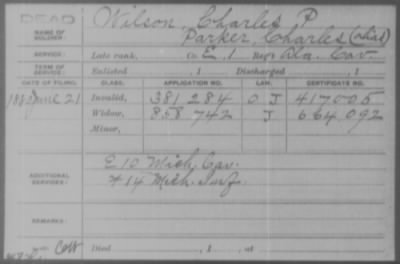 DEAD
NAME OF SOLDIER: Wilson, Charles P
Parker, Charles (alias)
SERVICE: Late rank, Co. E, 1 Reg't Ala. Cav.
TERM OF SERVICE: Enlisted , 1 Discharged , 1
DATE OF FILING. CLASS. APPLICATION NO. LAW. CERTIFICATE NO.
June 21 Invalid, 381 284 O J 417005
Widow, 858 742 J 664 092
Minor,
ADDITIONAL SERVICES: E 10 Mich. Cav.
14 Mich. Inf.
REMARKS:
Died , 1 , at